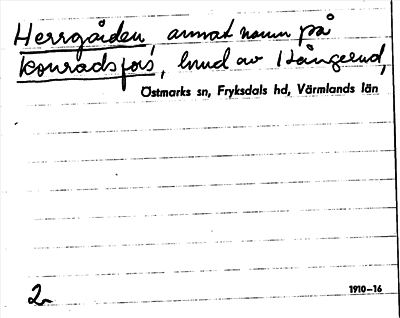 Herrgården, annat namn på
Konradsfors, hmd av Hångerud,
Östmarks sn, Fryksdals hd, Värmlands län
2
1910-16